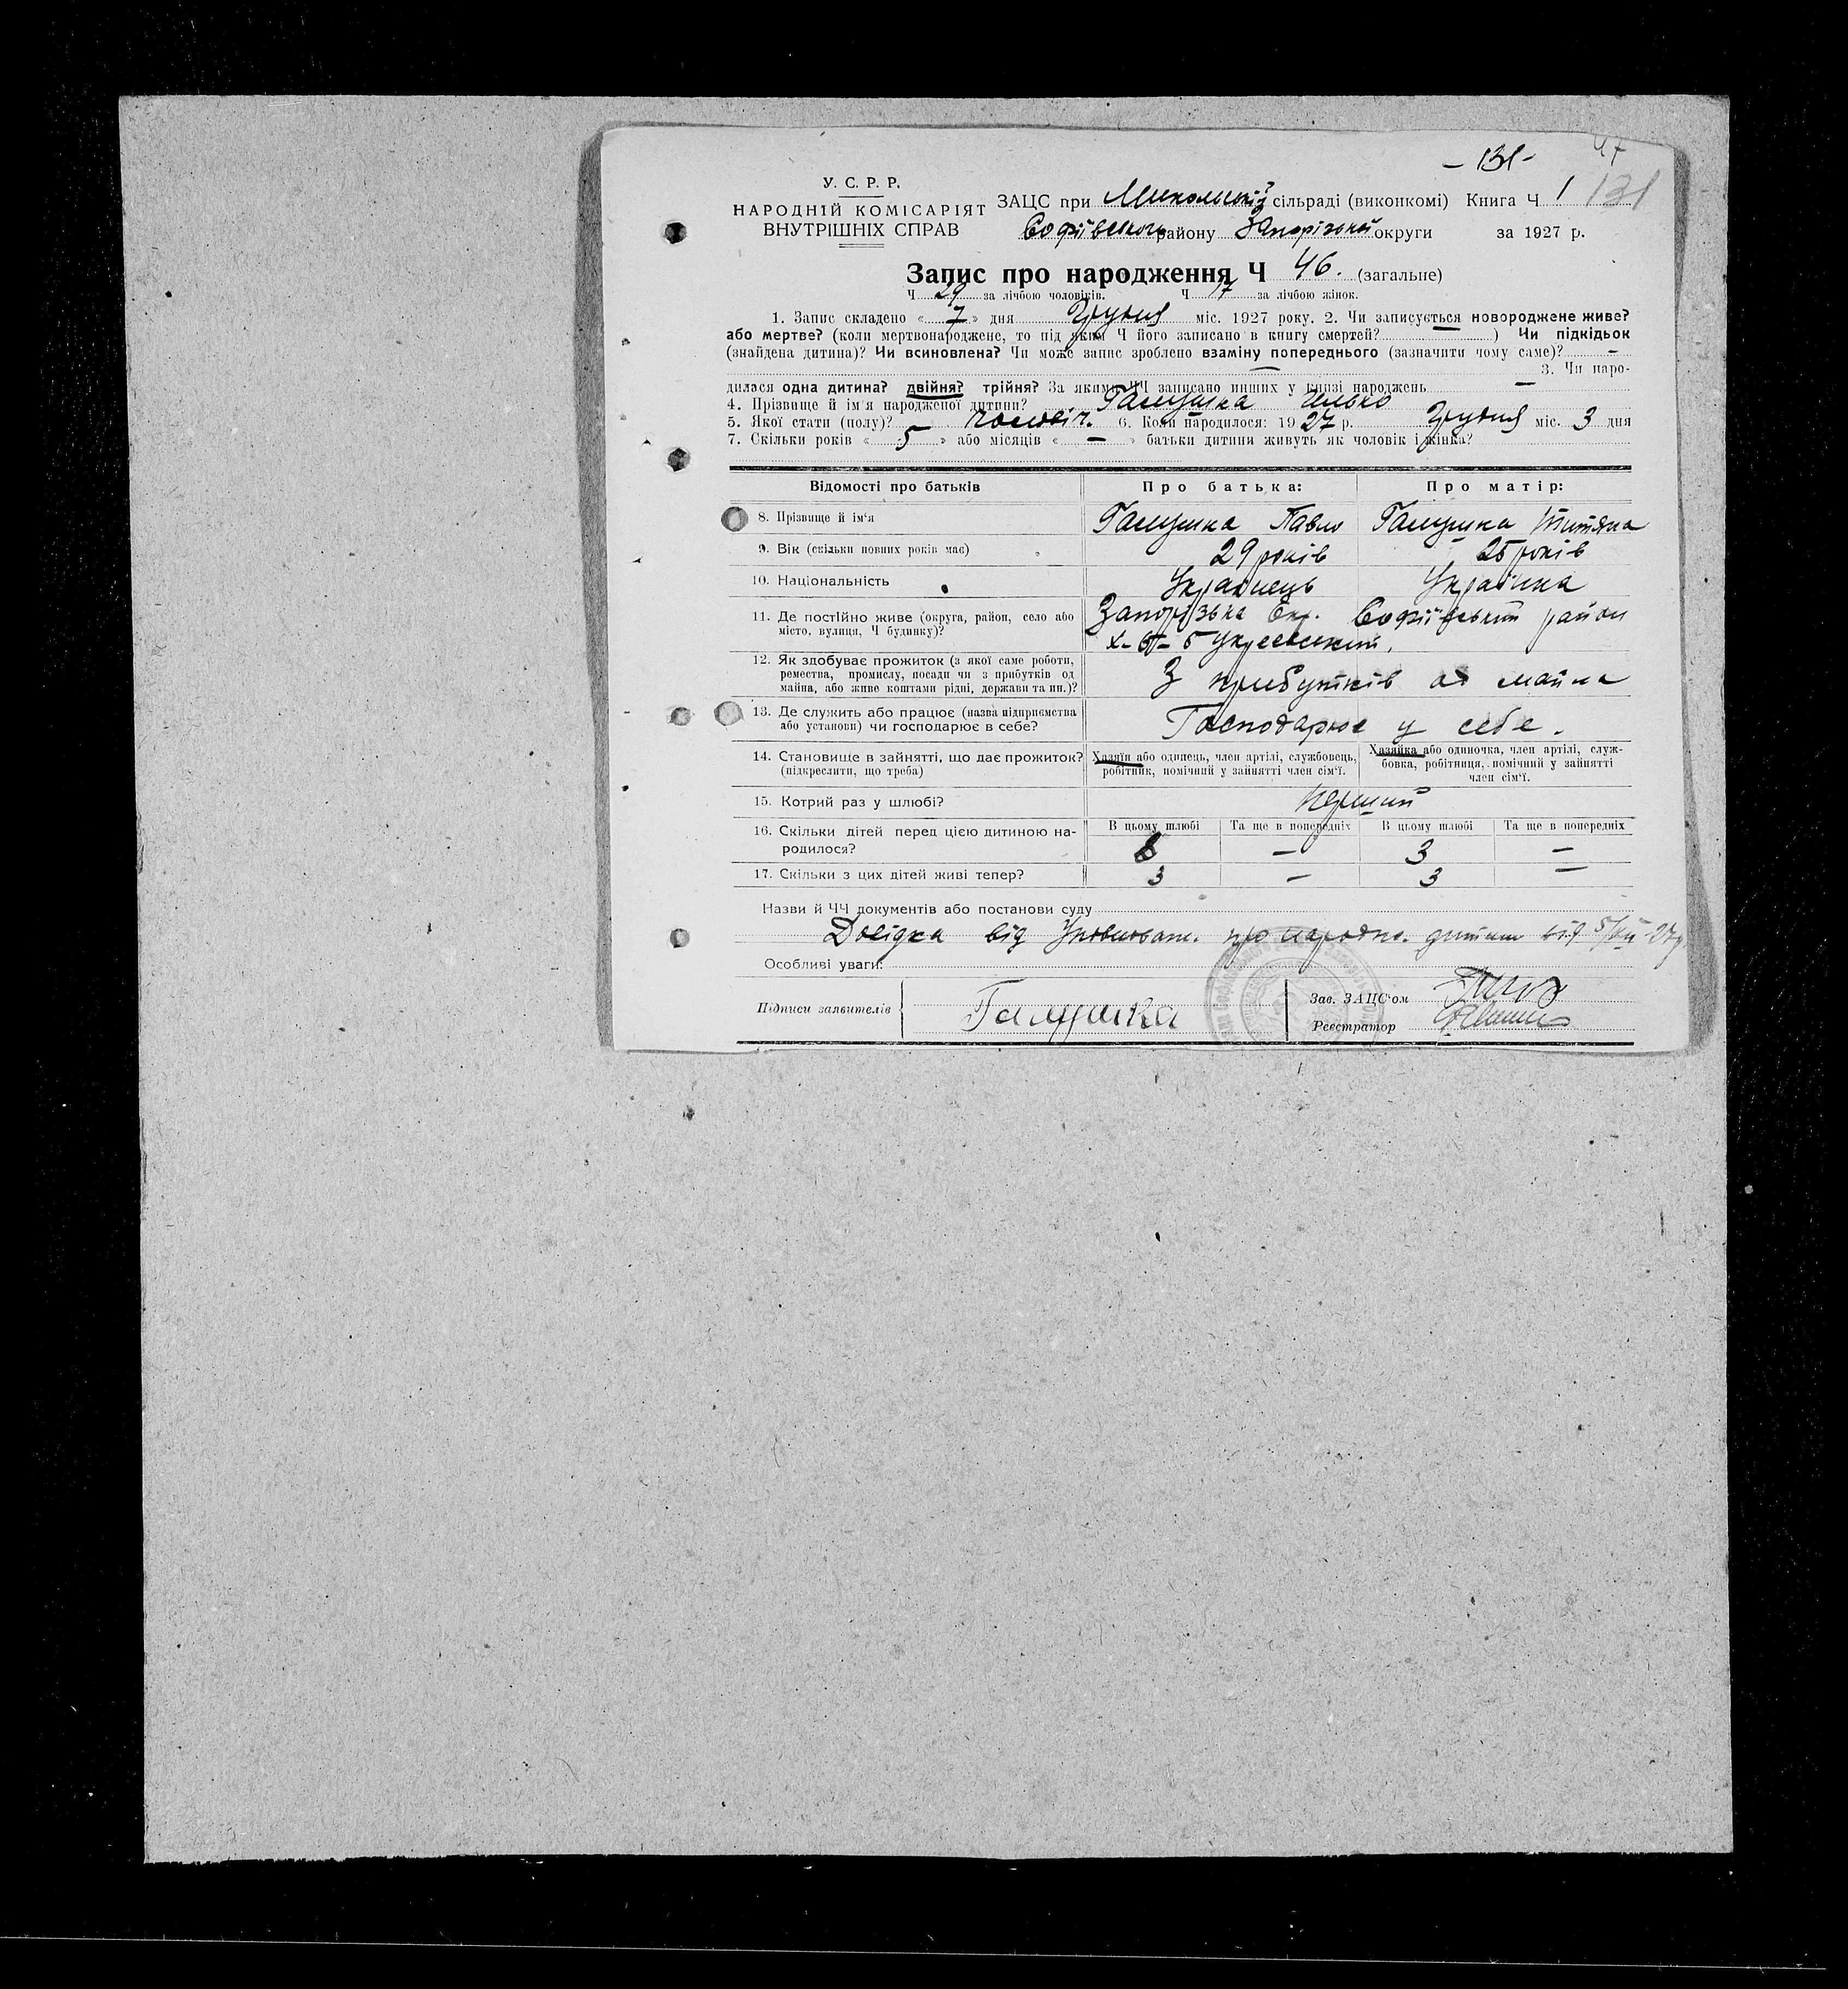 - 131 -
47
У. С. Р. Р.
НАРОДНІЙ КОМІСАРІЯТ
ВНУТРІШНІХ СПРАВ
ЗАЦС при Микольській сільраді (виконкомі) Книга Ч 1 131
Софіївського району Запорізької округи за 1927 р.
Запис про народження Ч 46. (загальне)
Ч 29 за лічбою чоловіків. Ч 17 за лічбою жінок.
1. Запис складено « 7 » дня Грудня міс. 1927 року. 2. Чи записується новороджене живе?
або мертве? (коли мертвонароджене, то під яким Ч його записано в книгу смертей? ) Чи підкідьок
(знайдена дитина)? Чи всиновлена? Чи може запис зроблено взаміну попереднього (зазначити чому саме)? –
— 3. Чи наро-
дилася одна дитина? двійня? трійня? За якими ЧЧ записано инших у книзі народжень —
4. Прізвище й ім'я народженої дитини? Галушка
5. Якої стати (полу)? чоловіч. 6. Коли народилося: 1927 р. Грудня міс. 3 дня
7. Скільки років « 5 » або місяців « — » батьки дитини живуть як чоловік і жінка?
Відомості про батьків
Про батька:
Про матір:
8. Прізвище й ім'я
Галушка Павло
Галушка Титяна
9. Вік (скільки повних років має)
29 років
25 років
10. Національність
Українець
Українка
11. Де постійно живе (округа, район, село або
місто, вулиця, Ч будинку)?
Запорізька Окр. Софіївський район
12. Як здобуває прожиток (з якої саме роботи,
ремества, промислу, посади чи з прибутків од
майна, або живе коштами рідні, держави та ин.)?
З прибутків од майна
13. Де служить або працює (назва підприємства
або установи) чи господарює в себе?
Господарює у себе.
14. Становище в зайнятті, що дає прожиток?
(підкреслити, що треба)
Хазяїн або одинець, член артілі, службовець,
робітник, помічний у зайнятті член сім'ї.
Хазяйка або одиночка, член артілі, служ-
бовка, робітниця, помічний у зайнятті
член сім'ї.
15. Котрий раз у шлюбі?
перший
16. Скільки дітей перед цією дитиною на-
родилося?
В цьому шлюбі
Та ще в попередніх
В цьому шлюбі
Та ще в попередніх
— 3 —
17. Скільки з цих дітей живі тепер?
3 — 3 —
Назви й ЧЧ документів або постанови суду
Довідка від Уповноваж. про народж. дитини від 5/XII-27р
Особливі уваги:
Підписи заявителів
Галушка
Зав. ЗАЦС'ом
Реєстратор